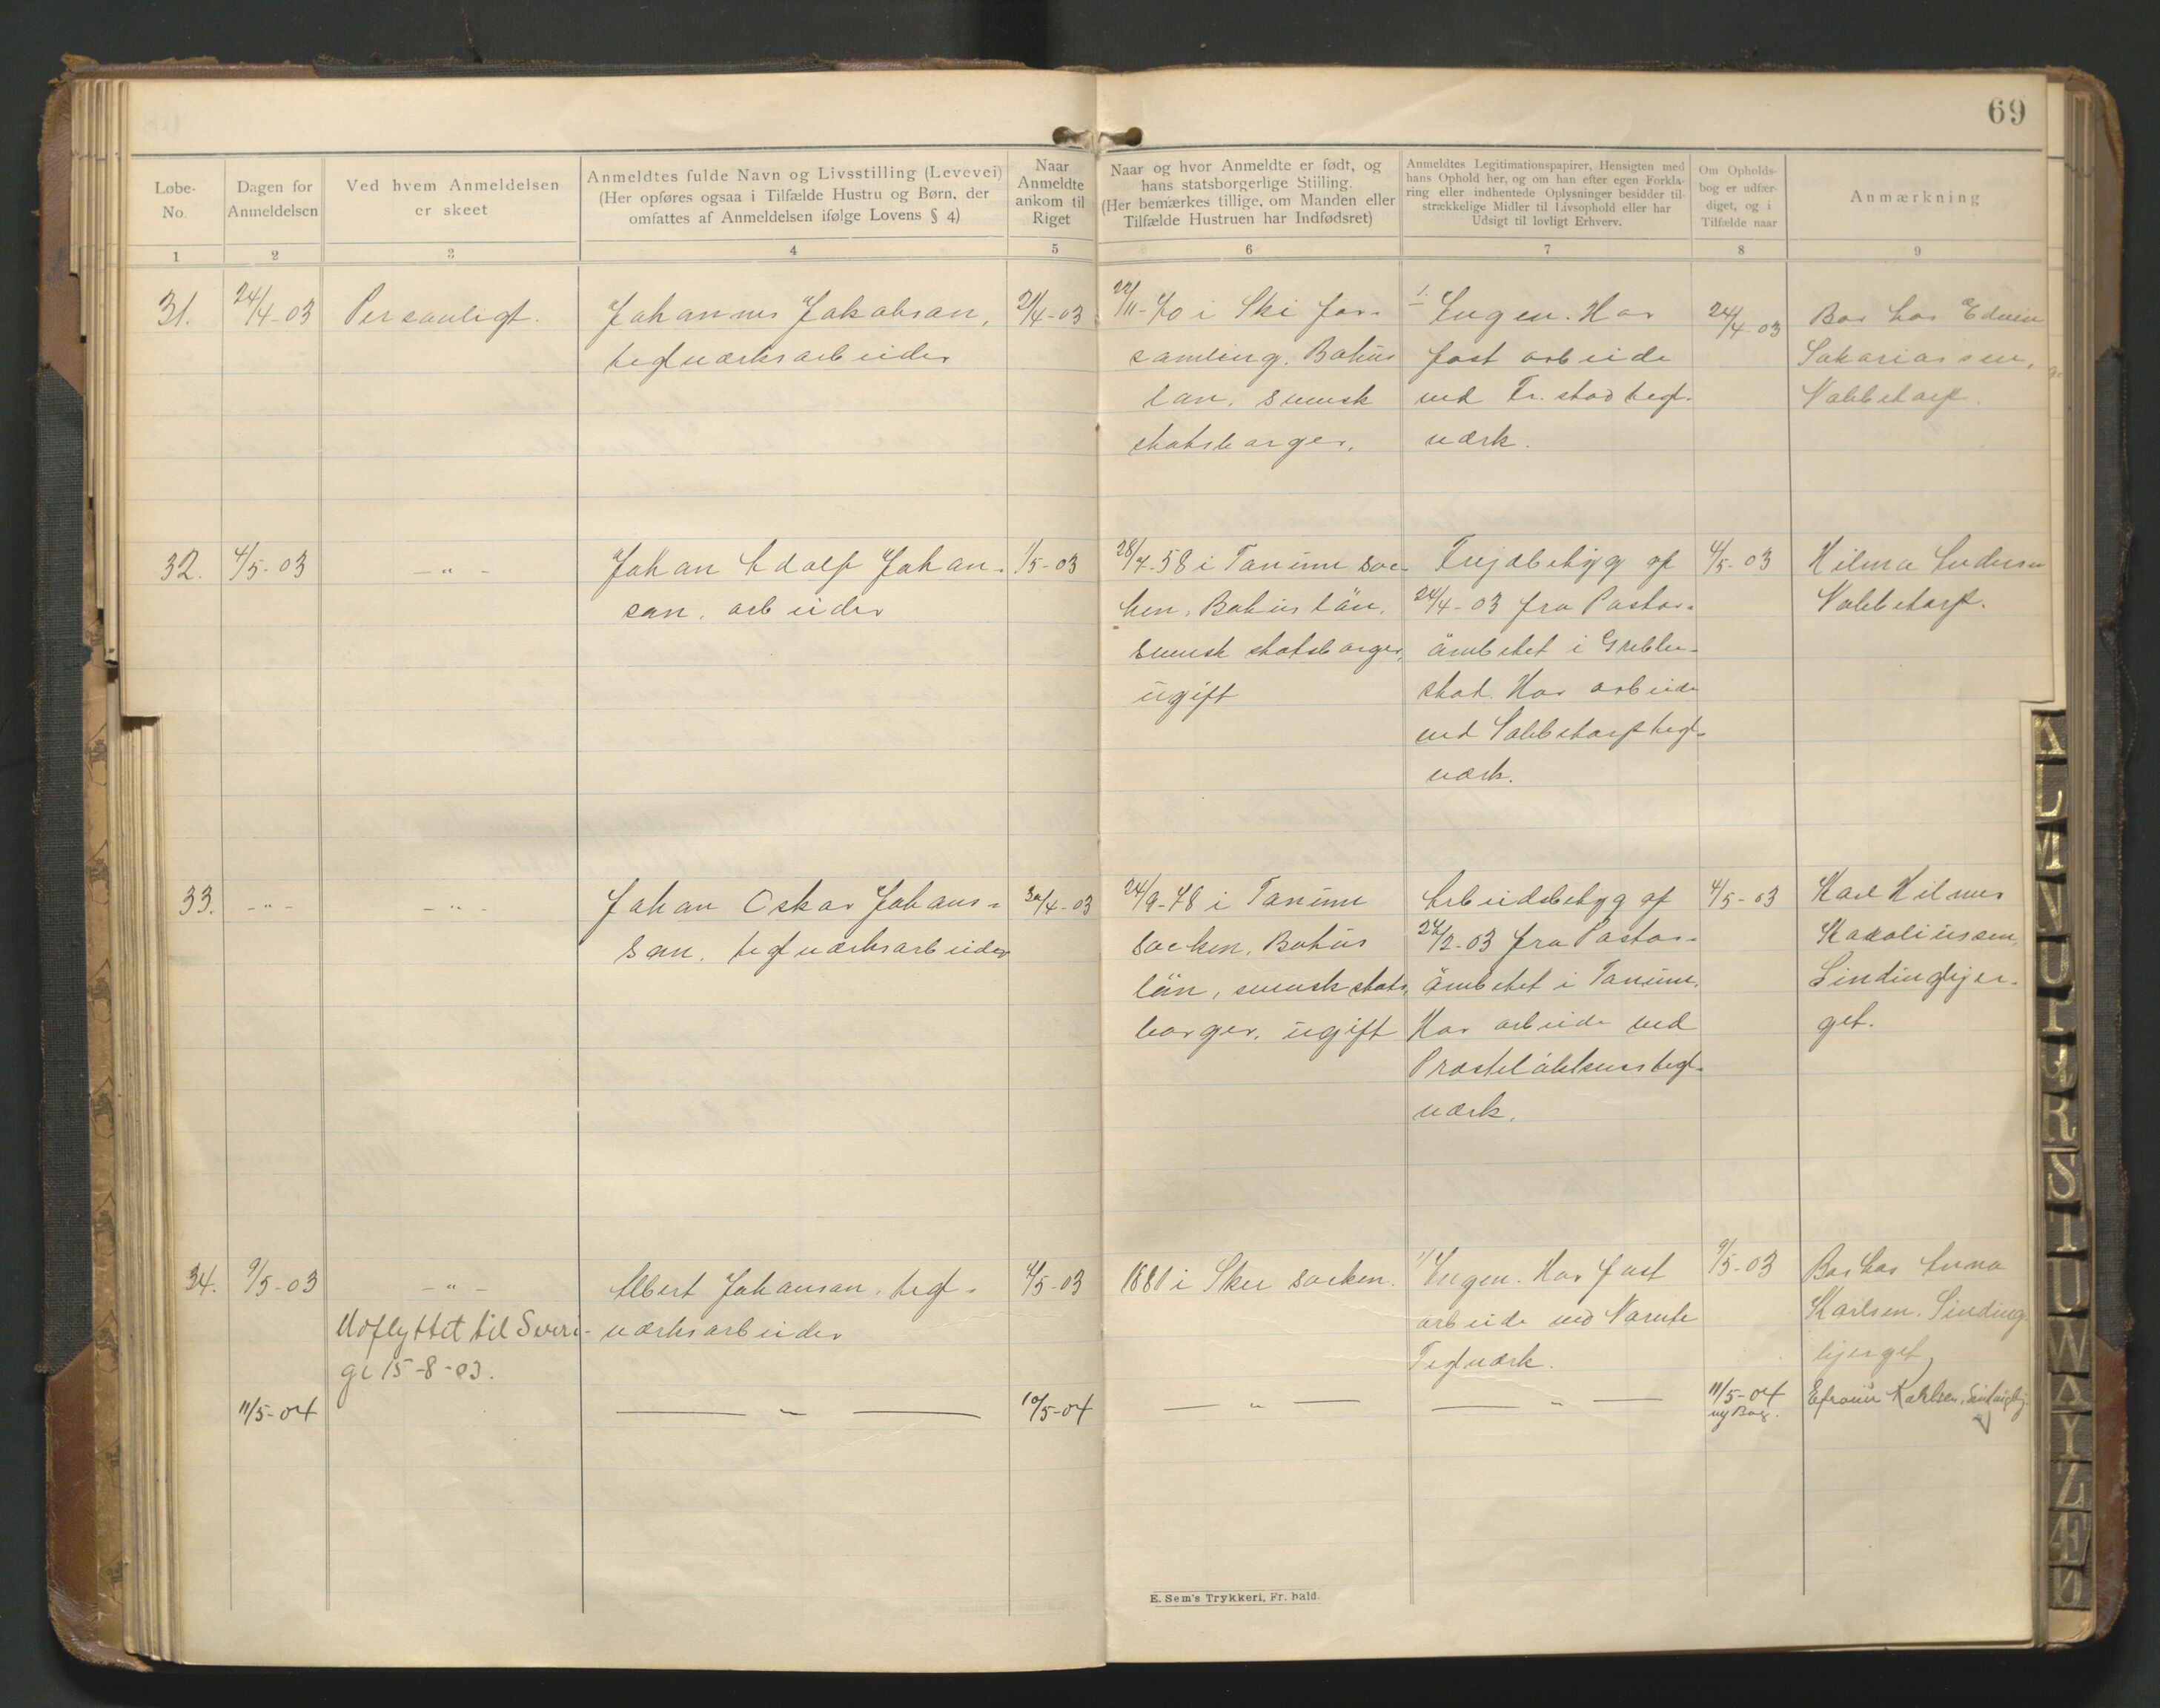 69
Løbe-
No.
Dagen for
Anmeldelsen
Ved hvem Anmeldelsen
er skeet
Anmeldtes fulde Navn og Livsstilling (Levevei)
(Her opføres ogsaa i Tilfælde Hustru og Børn, der
omfattes af Anmeldelsen ifølge Lovens § 4)
Naar
Anmeldte
ankom til
Riget
Naar og hvor Anmeldte er født, og
hans statsborgerlige Stilling.
(Her bemærkes tillige, om Manden eller
Tilfælde Hustruen har Indfødsret)
Anmeldtes Legitimationspapirer, Hensigten med
hans Ophold her, og om han efter egen Forkla-
ring eller indhentede Oplysninger besidder til-
strækkelige Midler til Livsophold eller har
Udsigt til lovligt Erhverv.
Om Opholds-
bog er udfær-
diget, og i
Tilfælde naar
Anmærkning
1 2 3 4 5 6 7 8 9
31.
24/4-03
Personligt.
Johannes Jakobson,
teglværksarbeider
21/4-03
i Ski for-
samling. Bohus
lan. svensk
statsborger.
Ingen. Har
fast arbeide
ved Fr.stad tegl-
værk.
24/4-03
Bor hos Edvin
Sakariassen,
Nabbetorp.
32.
4/5-03
-"-
Johan Adolf Johan-
son, arbeider
1/5-03
28/4-58 i Tanum soc-
ken, Bohus län,
svensk statsborger,
ugift
Frejdebetyg af
24/4-03 fra Pastor-
ämbetet i Grebbe-
stad. Har arbeide
ved Nabbetorp tegl-
værk.
4/5-03
Hilma Andersen
Nabbetorp.
33.
-"-
-"-
Johan Oskar Johans-
son, teglværksarbeider
30/4-03
24/9-78 i Tanum
socken, Bohus
län, svensk stats-
borger, ugift
Arbeidsbetyg af
fra Pastor-
ämbetet i Tanum.
Har arbeide ved
Præsteløkkens tegl-
værk.
4/5-03
Karl Hilmer
Karoliussen,
Sindingbjer-
get.
34.
9/5-03
-"-
Albert Johanson, tegl-
værksarbeider
4/5-03
1880 i Skee socken.
Ingen. Har fast
arbeide ved Narnte
Teglværk.
9/5-03
Bor hos Anna
Karlsen. Sinding
bjerget,
Udflyttet til Sveri-
ge 15-8-03.
11/5-04
-"-
10/5-04
-"-
-"-
11/5-04
ny Bog.
Efraim Karlsen, Sindingbj.
E. Sem's Trykkeri, Fr. hald.